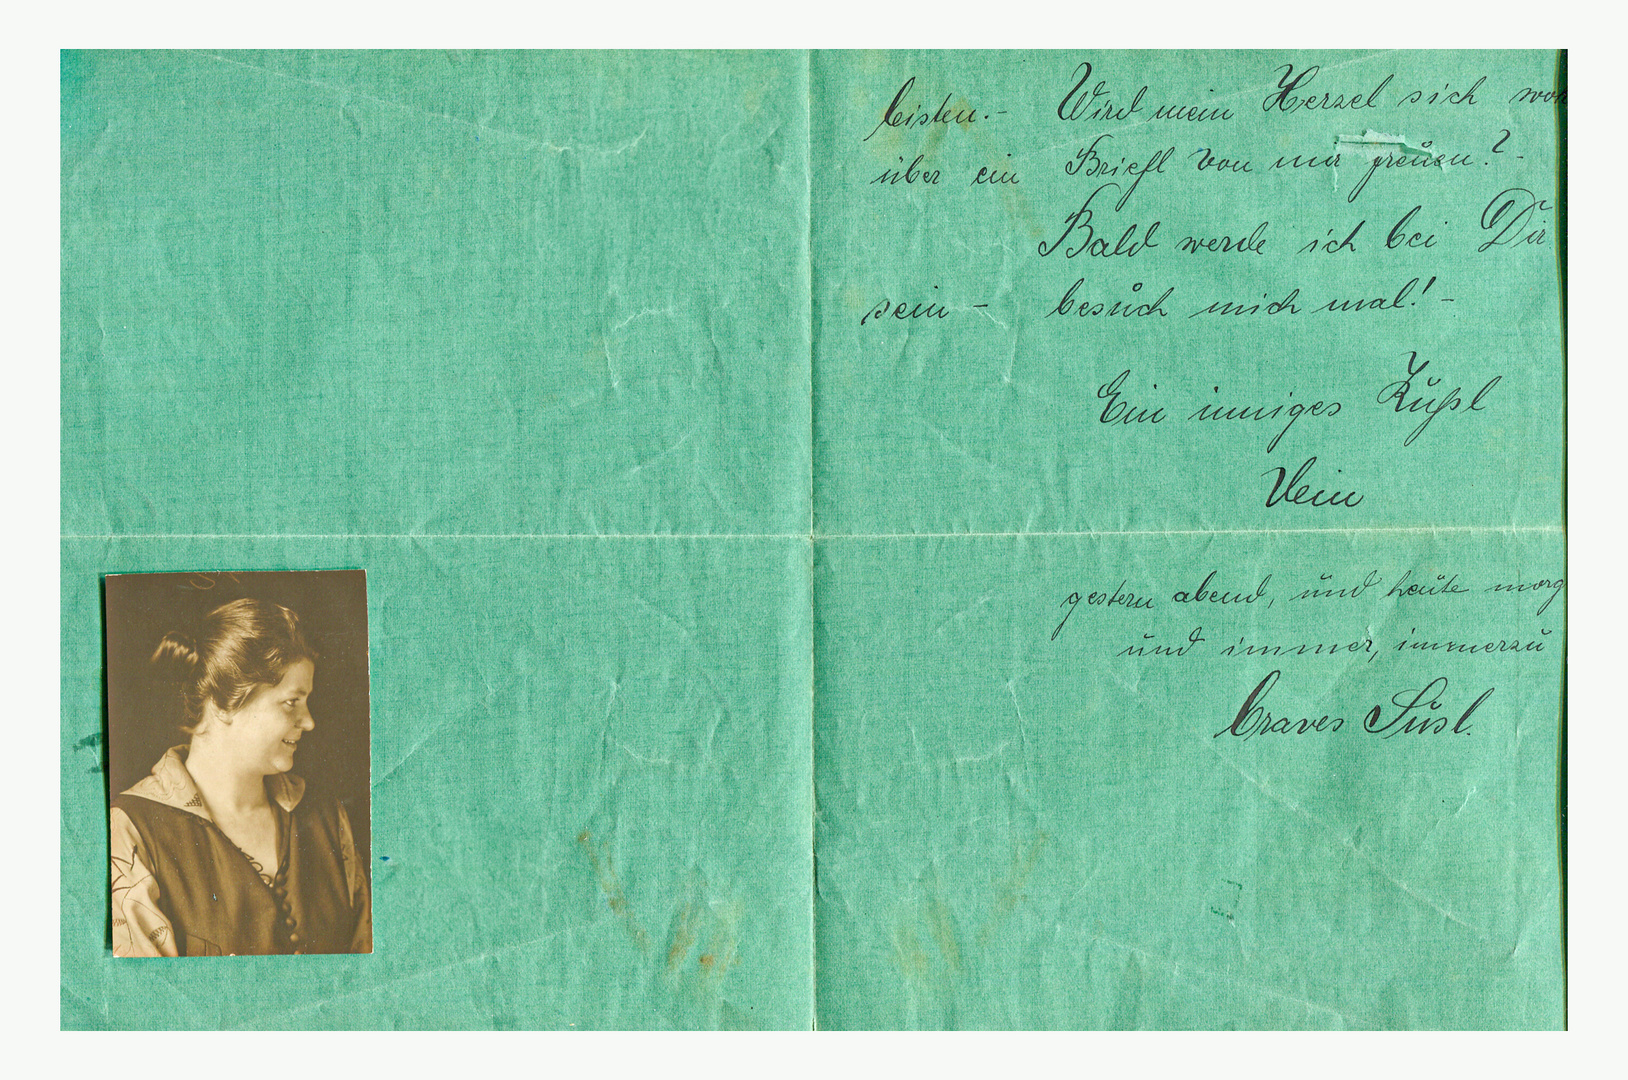 leisten.- Wird mein Herzel sich
über ein Briefl von mir freuen? -
Bald werde ich bei Dir
sein - besuch mich mal! -
Ein inniges Kußl
Dein
gestern abend, und heute morg
und immer, immerzu
braves Susl.